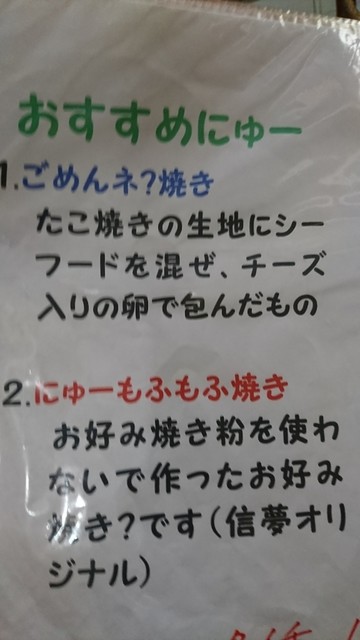 おすすめにゅー
1.ごめんネ?焼き
たこ焼きの生地にシー
フードを混ぜ、チーズ
入りの卵で包んだもの
2.にゅーもふもふ焼き
お好み焼き粉を使わ
ないで作ったお好み
焼き?です(信夢オリ
ジナル)